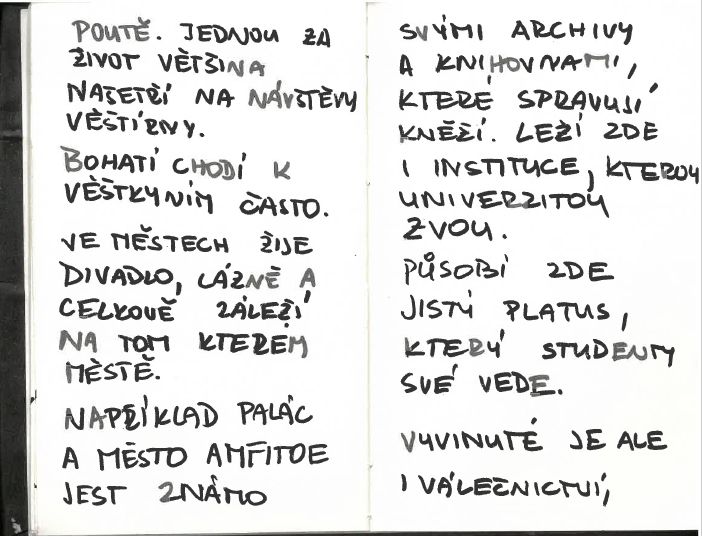 POUTĚ. JEDNOU ZA
ŽIVOT VĚTŠINA
NAŠETŘÍ NA NÁVŠTĚVY
VĚŠTÍRNY.
BOHATÍ CHODÍ K
VĚŠTKYNÍM ČASTO.
VE MĚSTECH ŽIJE
DIVADLO, LÁZNĚ A
CELKOVĚ ZÁLEŽÍ
NA TOM KTERÉM
MĚSTĚ.
NAPŘÍKLAD PALÁC
A MĚSTO AMFITOE
JEST ZNÁMO
SVÝMI ARCHIVY
A KNIHOVNAMI,
KTERÉ SPRAVUJÍ
KNĚŽÍ. LEŽÍ ZDE
I INSTITUCE, KTEROU
UNIVERZITOU
ZVOU.
PŮSOBÍ ZDE
JISTÝ PLATUS,
KTERÝ STUDENTY
SVÉ VEDE.
VYVINUTÉ JE ALE
I VÁLEČNICTVÍ,